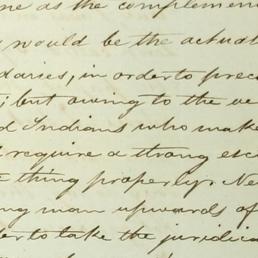 ne as the complemen
would be the actual
daries, in order to prec
; but owing to the ve
d Indians who make
require a strong esc
thing properly. Ne
ng man upwards of
der to take the juridica